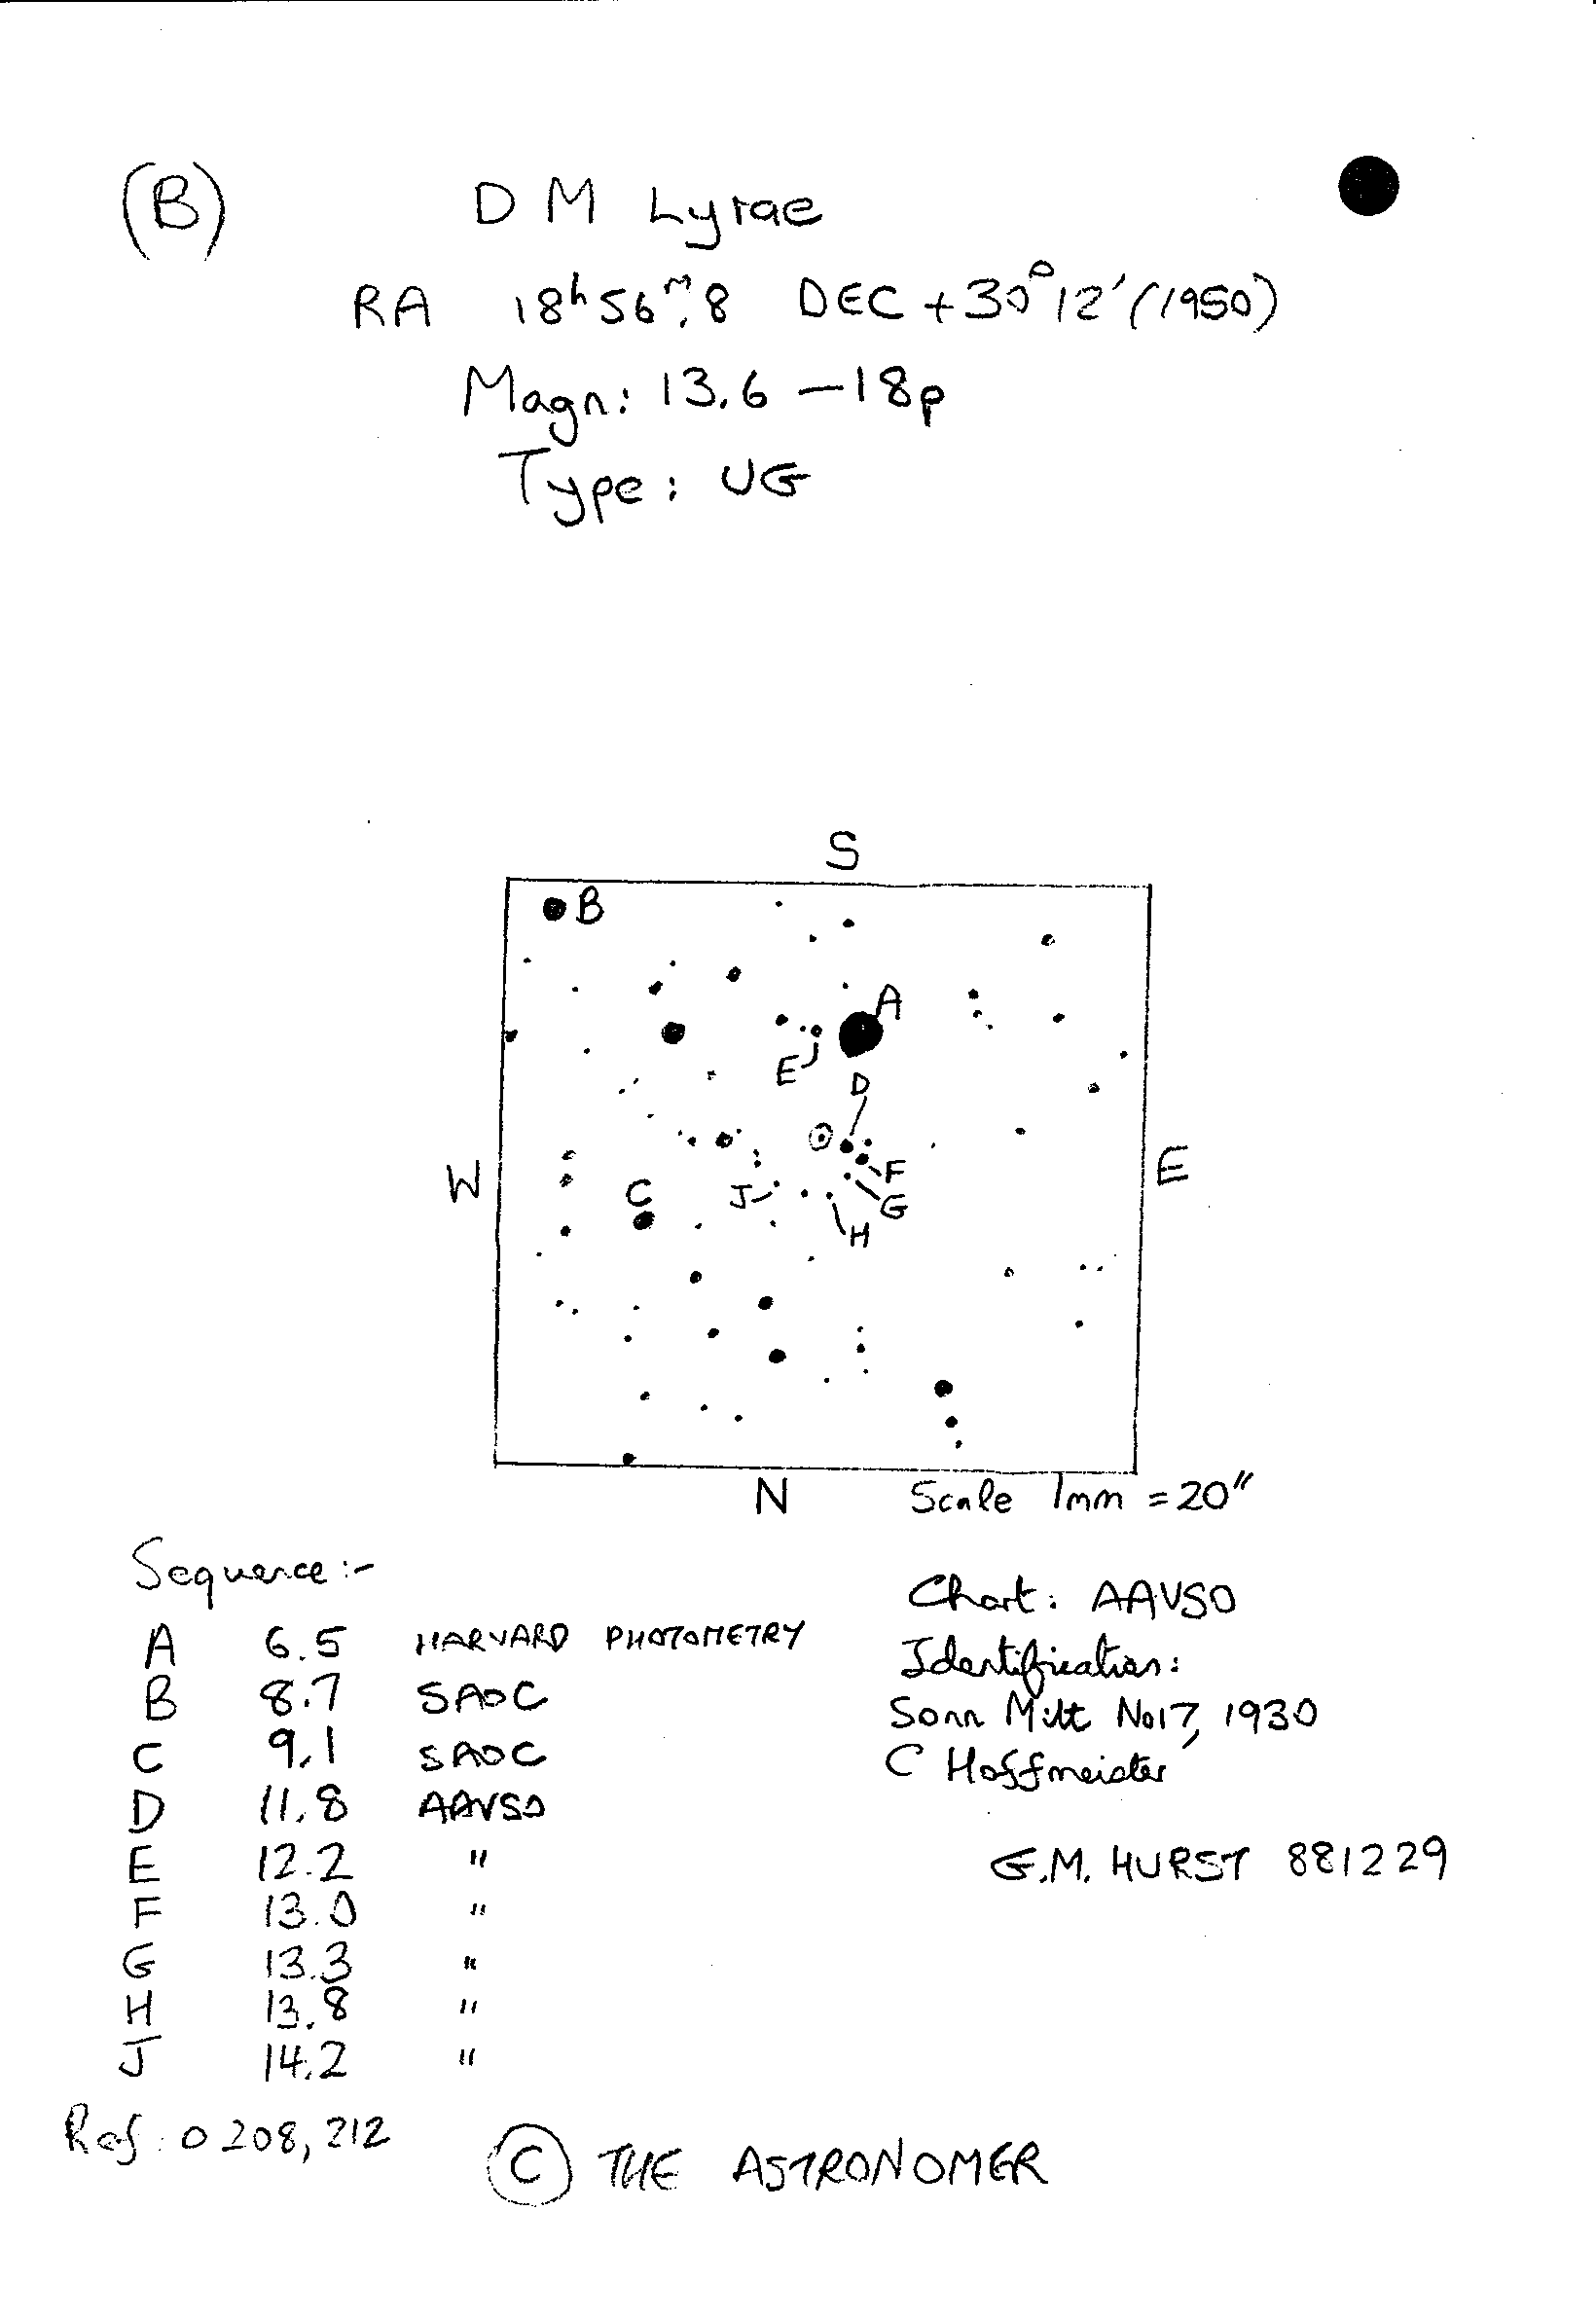 (B) DM Lyrae
RA 18ʰ56ᵐ.8 DEC +30°12′(1950)
Magn: 13.6 – 18p
Type: UG
S
B
A
E
D
W
E
C
J
F
G
H
N
Scale 1mm = 20″
Sequence :-
A 6.5 HARVARD PHOTOMETRY
B 8.7 SAOC
C 9.1 SAOC
D 11.8 AAVSO
E 12.2 "
F 13.0 "
G 13.3 "
H 13.8 "
J 14.2 "
Chart: AAVSO
Identification:
Sonn Mitt No17, 1930
C Hoffmeister
G.M. HURST 881229
Ref: 0 208, 212
© THE ASTRONOMER